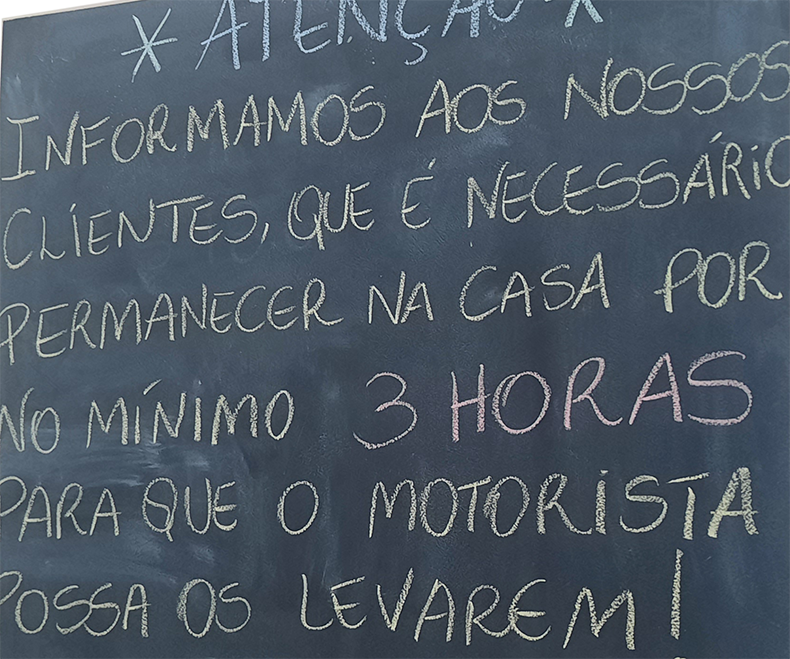 * ATENÇÃO *
INFORMAMOS AOS NOSSOS
CLIENTES, QUE É NECESSÁRIO
PERMANECER NA CASA POR
NO MÍNIMO 3 HORAS
PARA QUE O MOTORISTA
POSSA OS LEVAREM!